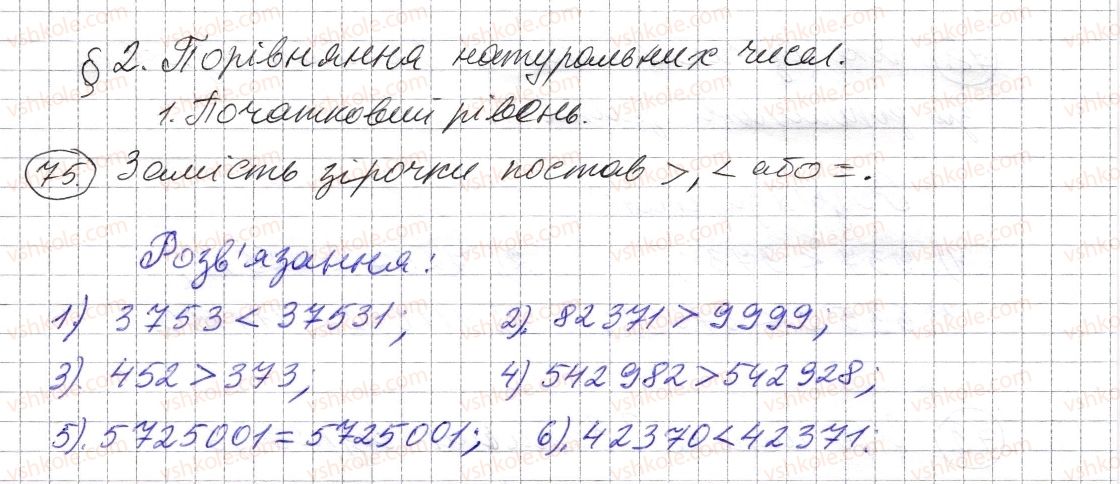 § 2. Порівняння натуральних чисел.
1. Початковий рівень.
75. Замість зірочки постав >, < або =.
Розв'язання:
1) 3753 < 37531; 2). 82371 > 9999;
3). 452 > 373; 4) 542982 > 542928;
5). 5725001 = 5725001; 6). 42370 < 42371.
vshkole.com